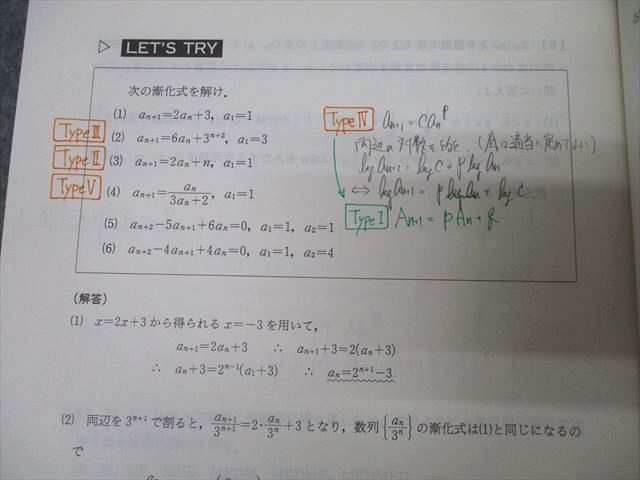 ▷ LET'S TRY
次の漸化式を解け.
(1) aₙ₊₁=2aₙ+3, a₁=1
Type Ⅲ (2) aₙ₊₁=6aₙ+3ⁿ⁺², a₁=3
Type Ⅱ (3) aₙ₊₁=2aₙ-n, a₁=1
Type Ⅴ (4) aₙ₊₁=aₙ/(3aₙ+2), a₁=1
(5) aₙ₊₂-5aₙ₊₁+6aₙ=0, a₁=1, a₂=1
(6) aₙ₊₂-4aₙ₊₁+4aₙ=0, a₁=1, a₂=4
Type Ⅳ aₙ₊₁=Caₙᵖ
両辺の対数をとる. (底は適当に定めてよい)
log aₙ₊₁=log C+p log aₙ
⇔ log aₙ₊₁=p log aₙ+log C.
Type Ⅰ Aₙ₊₁=pAₙ+q
(解答)
(1) x=2x+3 から得られる x=-3 を用いて,
aₙ₊₁=2aₙ+3 ∴ aₙ₊₁+3=2(aₙ+3)
∴ aₙ+3=2ⁿ⁻¹(a₁+3) ∴ aₙ=2ⁿ⁺¹-3
(2) 両辺を 3ⁿ⁺¹ で割ると, aₙ₊₁/3ⁿ⁺¹=2・aₙ/3ⁿ+3 となり, 数列{aₙ/3ⁿ}の漸化式は(1)と同じになるの
で